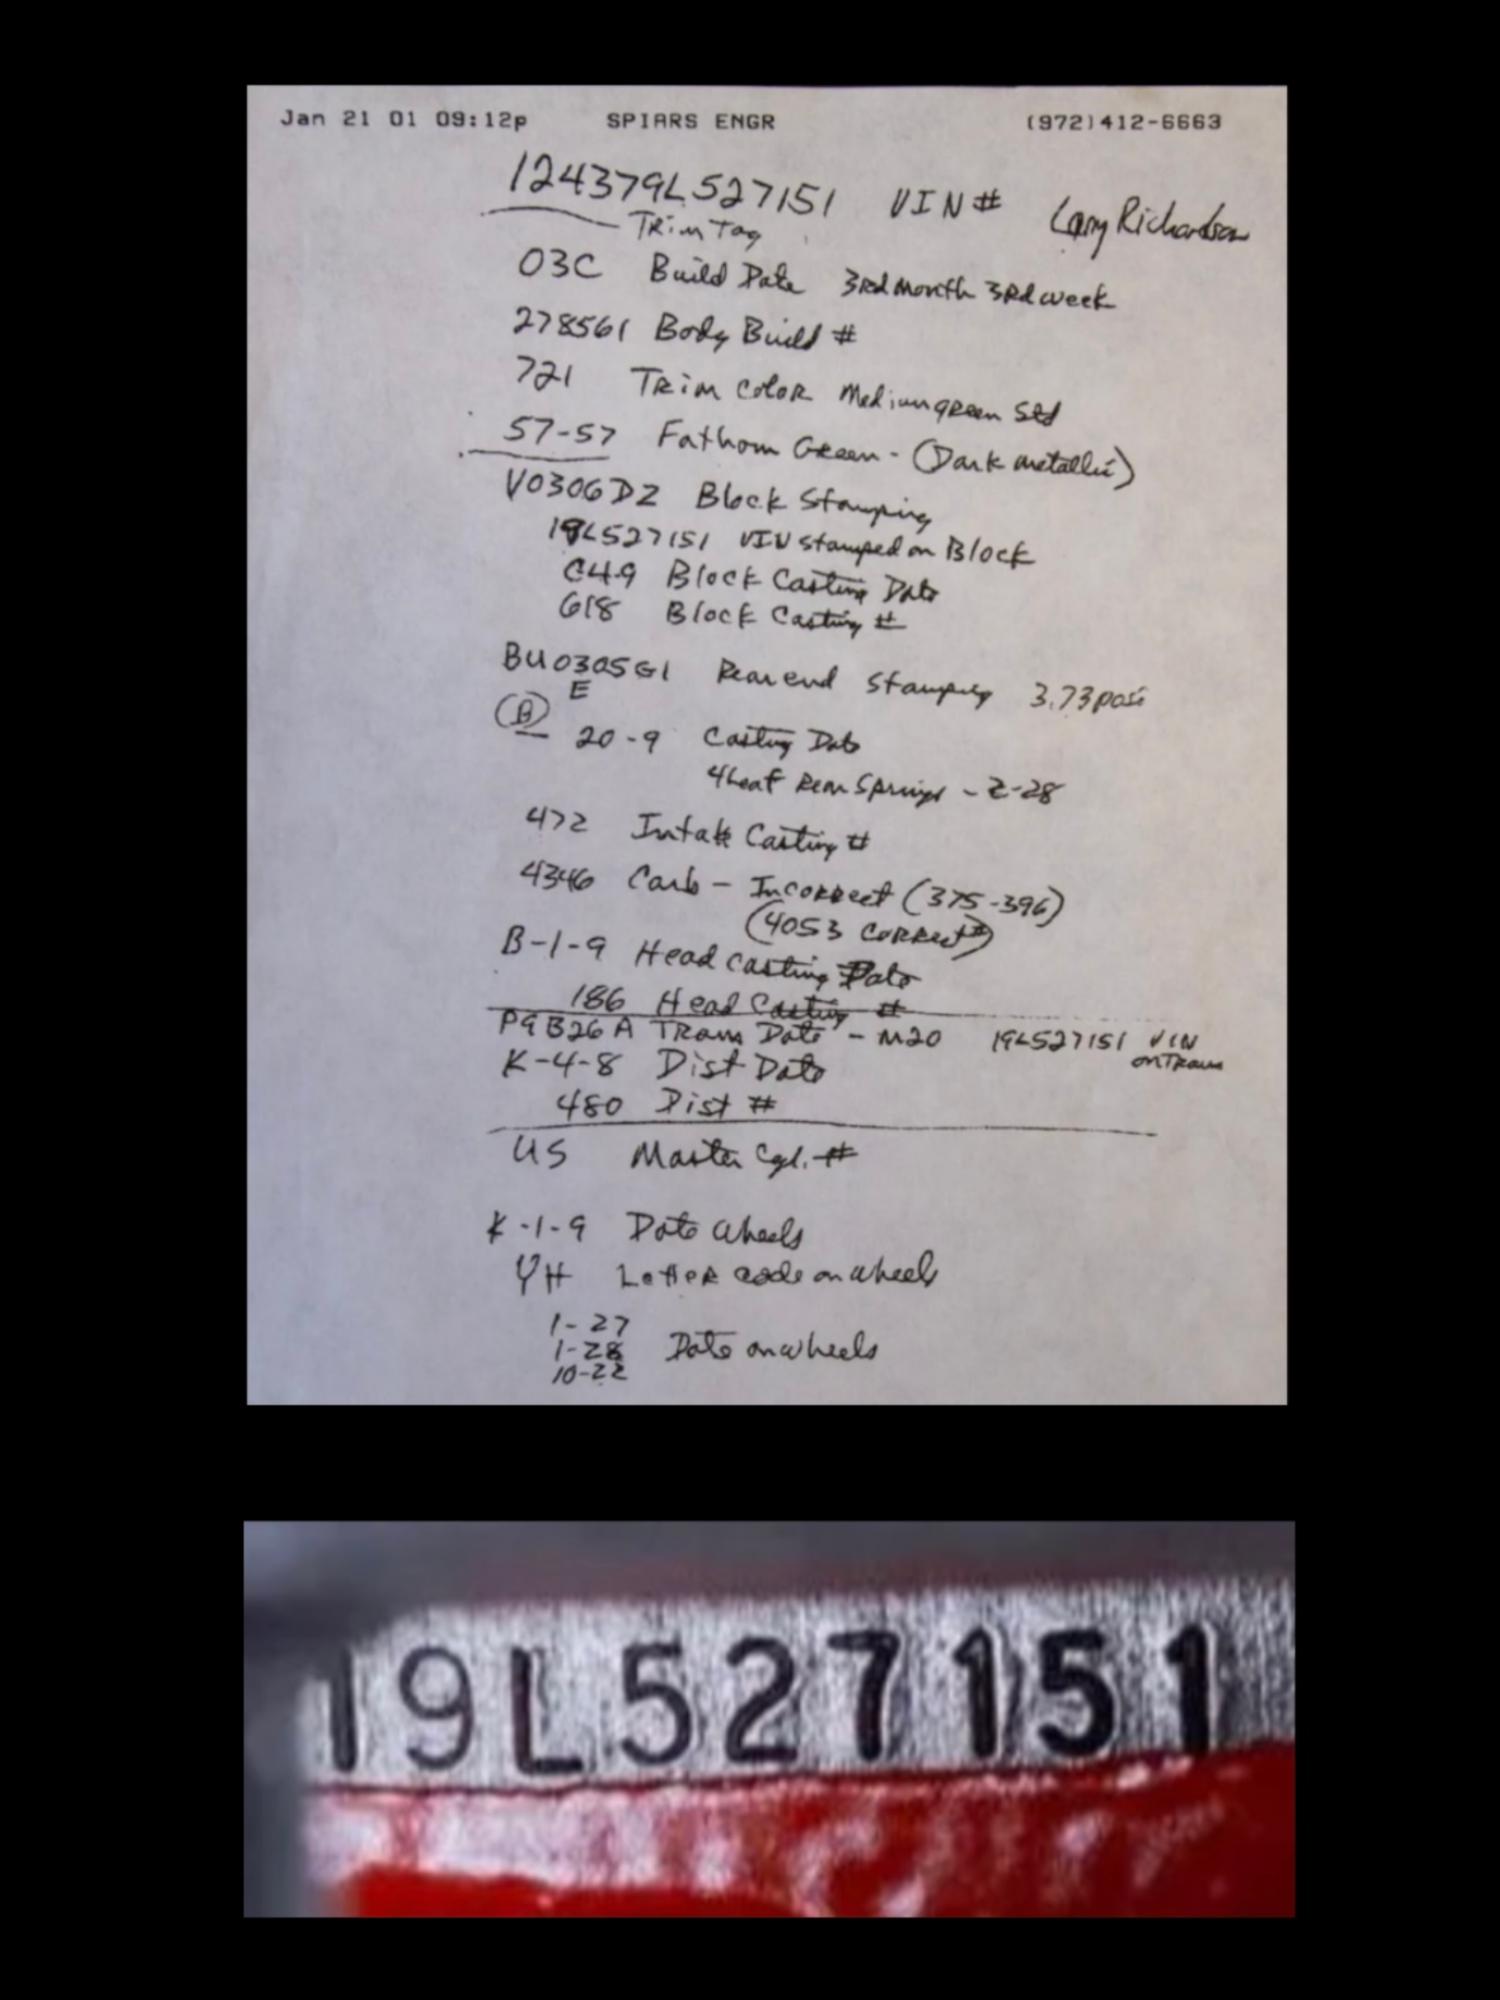 Jan 21 01 09:12p SPIARS ENGR (972)412-6663
124379L527151 VIN# Larry Richardson
Trim Tag
03C Build Date 3rd month 3rd week
278561 Body Build #
721 Trim Color Medium green Std
57-57 Fathom Green - (Dark metallic)
V0306DZ Block Stamping
19L527151 VIN stamped on Block
C-4-9 Block Casting Date
618 Block Casting #
BU0305G1 Rear end Stamping 3.73 posi
E
(B) 20-9 Casting Date
4 Leaf Rear Springs - Z-28
472 Intake Casting #
4346 Carb - Incorrect (375-396)
(4053 correct#)
B-1-9 Head Casting Date
186 Head Casting #
P9B26A Trans Date - M20 19L527151 VIN
on Trans
K-4-8 Dist Date
480 Dist #
US Master Cyl. #
K-1-9 Date Wheels
YH Letter code on wheels
1-27
1-28 Date on wheels
10-22
19L527151